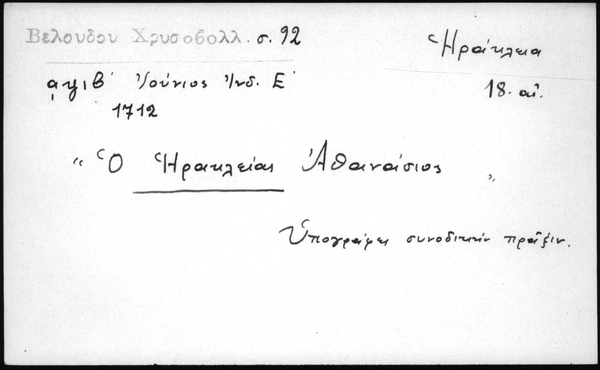 Βελουδου Χρυσοβολλ. σ. 92
Ἡράκλεια
͵αψιβ′ Ἰούνιος Ἰνδ. Ε′
18. αἰ.
1712
“ Ὁ Ἡρακλείας Ἀθανάσιος „
Ὑπογράφει συνοδικὴν πρᾶξιν.